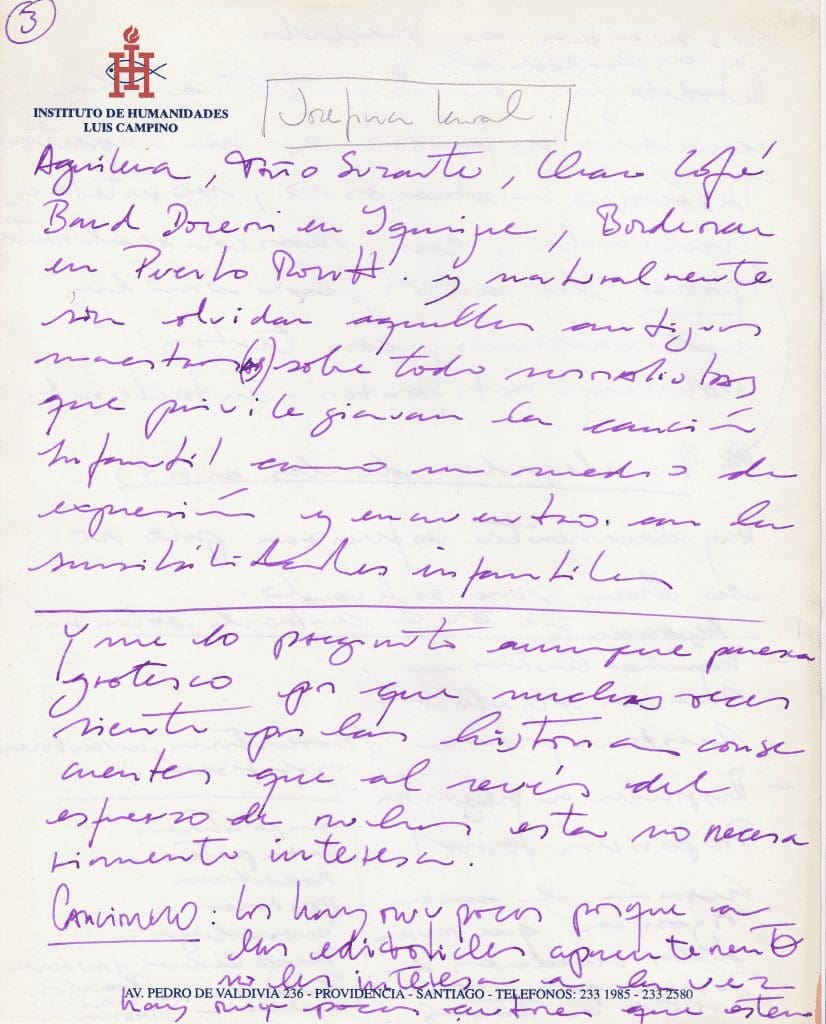 3
INSTITUTO DE HUMANIDADES
LUIS CAMPINO
Josefina
Aguilera, Charo Cofré
Band en Iquique,
en Puerto Montt. y naturalmente
sin olvidar aquellos antiguos
maestros (as) sobre todo normalistas
que privilegiavan la canción
infantil como un medio de
expresión y encuentro. con la
sensibilidades infantiles
Y me lo pregunto aunque paresca
grotesco por que muchas veces
siento por las historias conse
cuentes que al revés del
esfuerzo de muchos esto no necesa
riamente interesa.
CANCIONERO: los hay muy pocos porque a
las editoriales aparentemente
no les interesa a la vez
AV. PEDRO DE VALDIVIA 236 - PROVIDENCIA - SANTIAGO - TELEFONOS: 233 1985 - 233 2580
hay muy pocos autores que esten